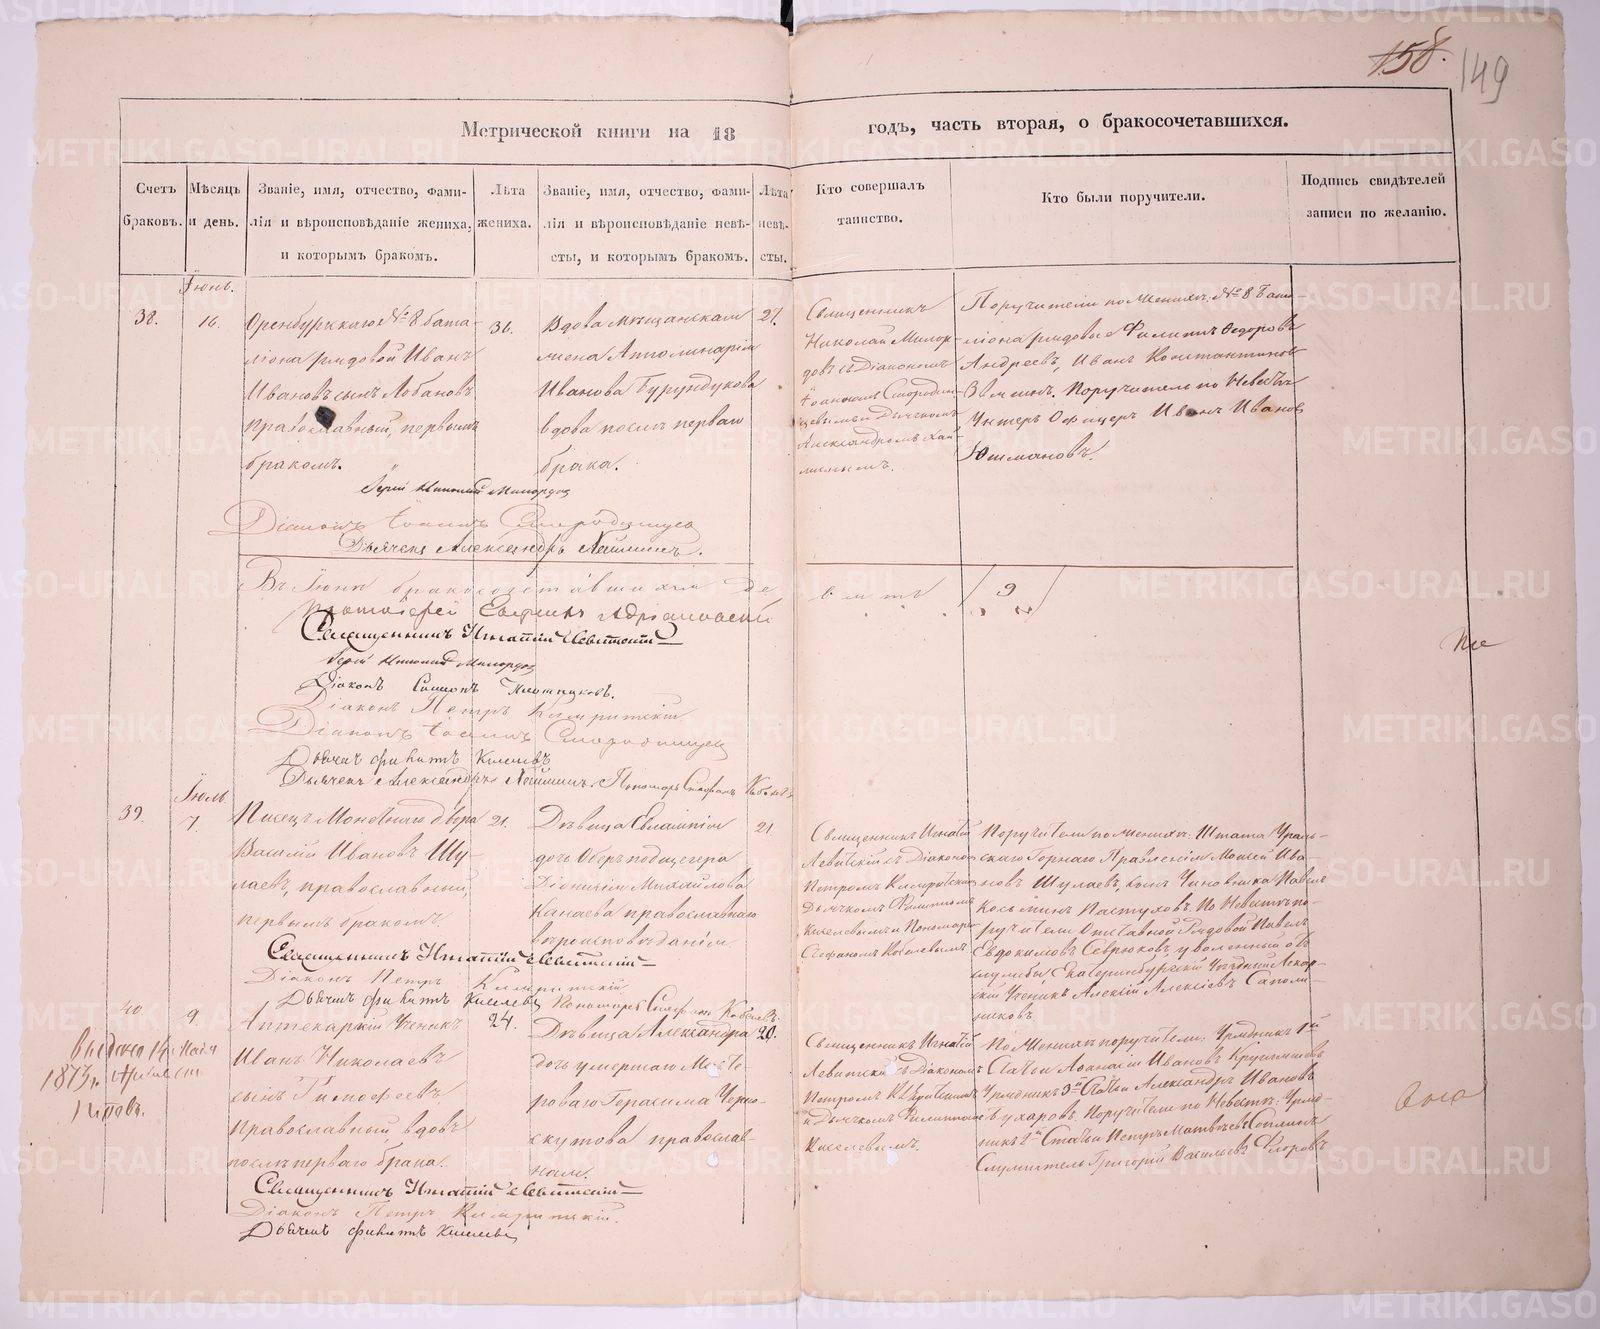 158. 149
Метрической книги на 18 годъ, часть вторая, о бракосочетавшихся.
Счетъ браковъ.
Мѣсяцъ и день.
Званіе, имя, отчество, фами-
лія и вѣроисповѣданіе жениха,
и которымъ бракомъ.
Лѣта жениха.
Званіе, имя, отчество, фами-
лія и вѣроисповѣданіе невѣ-
сты, и которымъ бракомъ.
Лѣта невѣ-
сты.
Кто совершалъ
таинство.
Кто были поручители.
Подпись свидѣтелей
записи по желанію.
Іюнь.
38. 16.
Оренбургкаго № 8 бата-
ліона рядовой Иванъ
Ивановъ сынъ Лобановъ
православный, первымъ
бракомъ.
Вдова мѣщанская
жена Апполинарія
Иванова Бурундукова
вдова послѣ перваго
брака.
Священникъ
Николай Милор-
довъ съ Діакономъ
Іоанномъ Смородин-
цевымъ и Дьячкомъ
Александромъ
Поручители по Женихѣ: № 8 Бата-
ліона рядовые Филиппъ Федоровъ
Андреевъ, Иванъ Константинов
Поручитель по Невѣстѣ
Унтеръ Офицеръ Иванъ Иванов
Іерей Николай Милордов
Діаконъ Іоаннъ Смородинцев
Дьячекъ Александръ
Въ Іюнѣ бракосочетавшихся де
вять /9/
Протоіерей
Священникъ Игнатій Левитскій
Іерей Николай Милордов
Діаконъ Симеонъ Плотниковъ.
Діаконъ Петръ
Діаконъ Іоаннъ Смородинцев
Дьячекъ Филиппъ Киселевъ
Дьячекъ Александръ Пономарь Стефанъ
Іюль
39. 7.
Писецъ Монетнаго двора 21.
Василій Ивановъ Шу-
лаевъ, православный,
первымъ бракомъ.
Дѣвица Евлампія 21.
дочь Оберъ
Діонисія Михайлова
Канаева православнаго
вѣроисповѣданія.
Священникъ Игнатій
Левитскій съ Діакономъ
Петромъ
Дьячкомъ Филиппомъ
Киселевымъ и Пономаремъ
Стефаномъ
Поручители по Женихѣ: Штата Ураль-
скаго Горнаго Правленія Моисей Ива-
новъ Шулаевъ, сынъ Чиновника Павелъ
Косьминъ Пастуховъ. По Невѣстѣ по-
ручители Отставной Рядовой Павелъ
Евдокимовъ Севрюковъ, уволенный отъ
службы Екатеринбургскій Уѣздный Лекар-
скій Ученикъ Алексій Алексіевъ Сапож-
никовъ.
Священникъ Игнатій Левитскій
Діаконъ Петръ
Дьячекъ Филиппъ Киселевъ Пономарь Стефанъ
40. 9.
1873 г.
Аптекарскій Ученикъ 24.
Иванъ Николаевъ
сынъ Тимофеевъ,
Православный, вдовъ
послѣ перваго брака.
Дѣвица Александра 20.
дочь умершаго Масте
роваго Герасима Черно-
скутова православ-
ная.
Священникъ Игнатій
Левитскій съ Діакономъ
Петромъ
и Дьячкомъ Филиппомъ
Киселевымъ.
По Женихѣ поручители: Урядникъ 1й
Статьи Афанасій Ивановъ
Урядникъ 3й Статьи Александръ Ивановъ
Бухаровъ. Поручители по Невѣстѣ: Уряд-
никъ 2й Статьи Петръ Матвѣевъ
Служитель Григорій Васильевъ Флоровъ
Священникъ Игнатій Левитскій
Діаконъ Петръ
Дьячекъ Филиппъ Киселевъ
METRIKI.GASO-URAL.RU